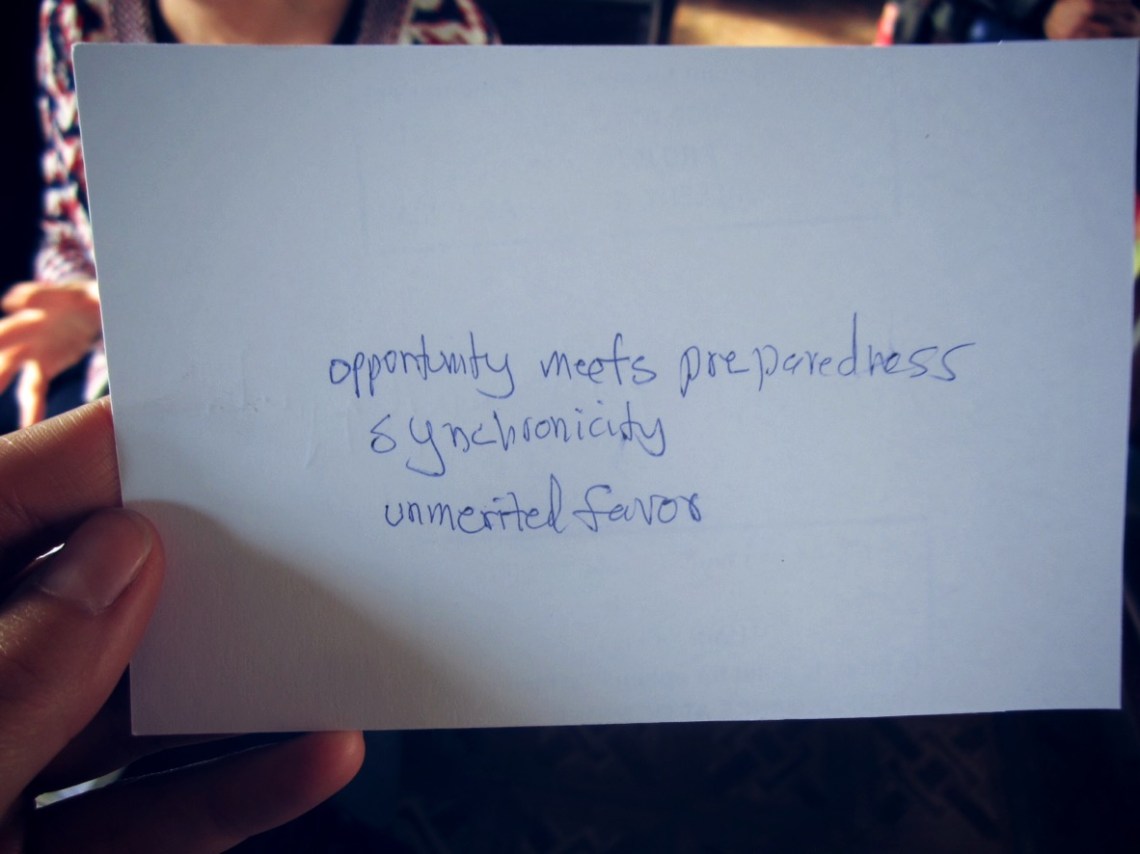 opportunity meets preparedness
synchronicity
unmerited favor